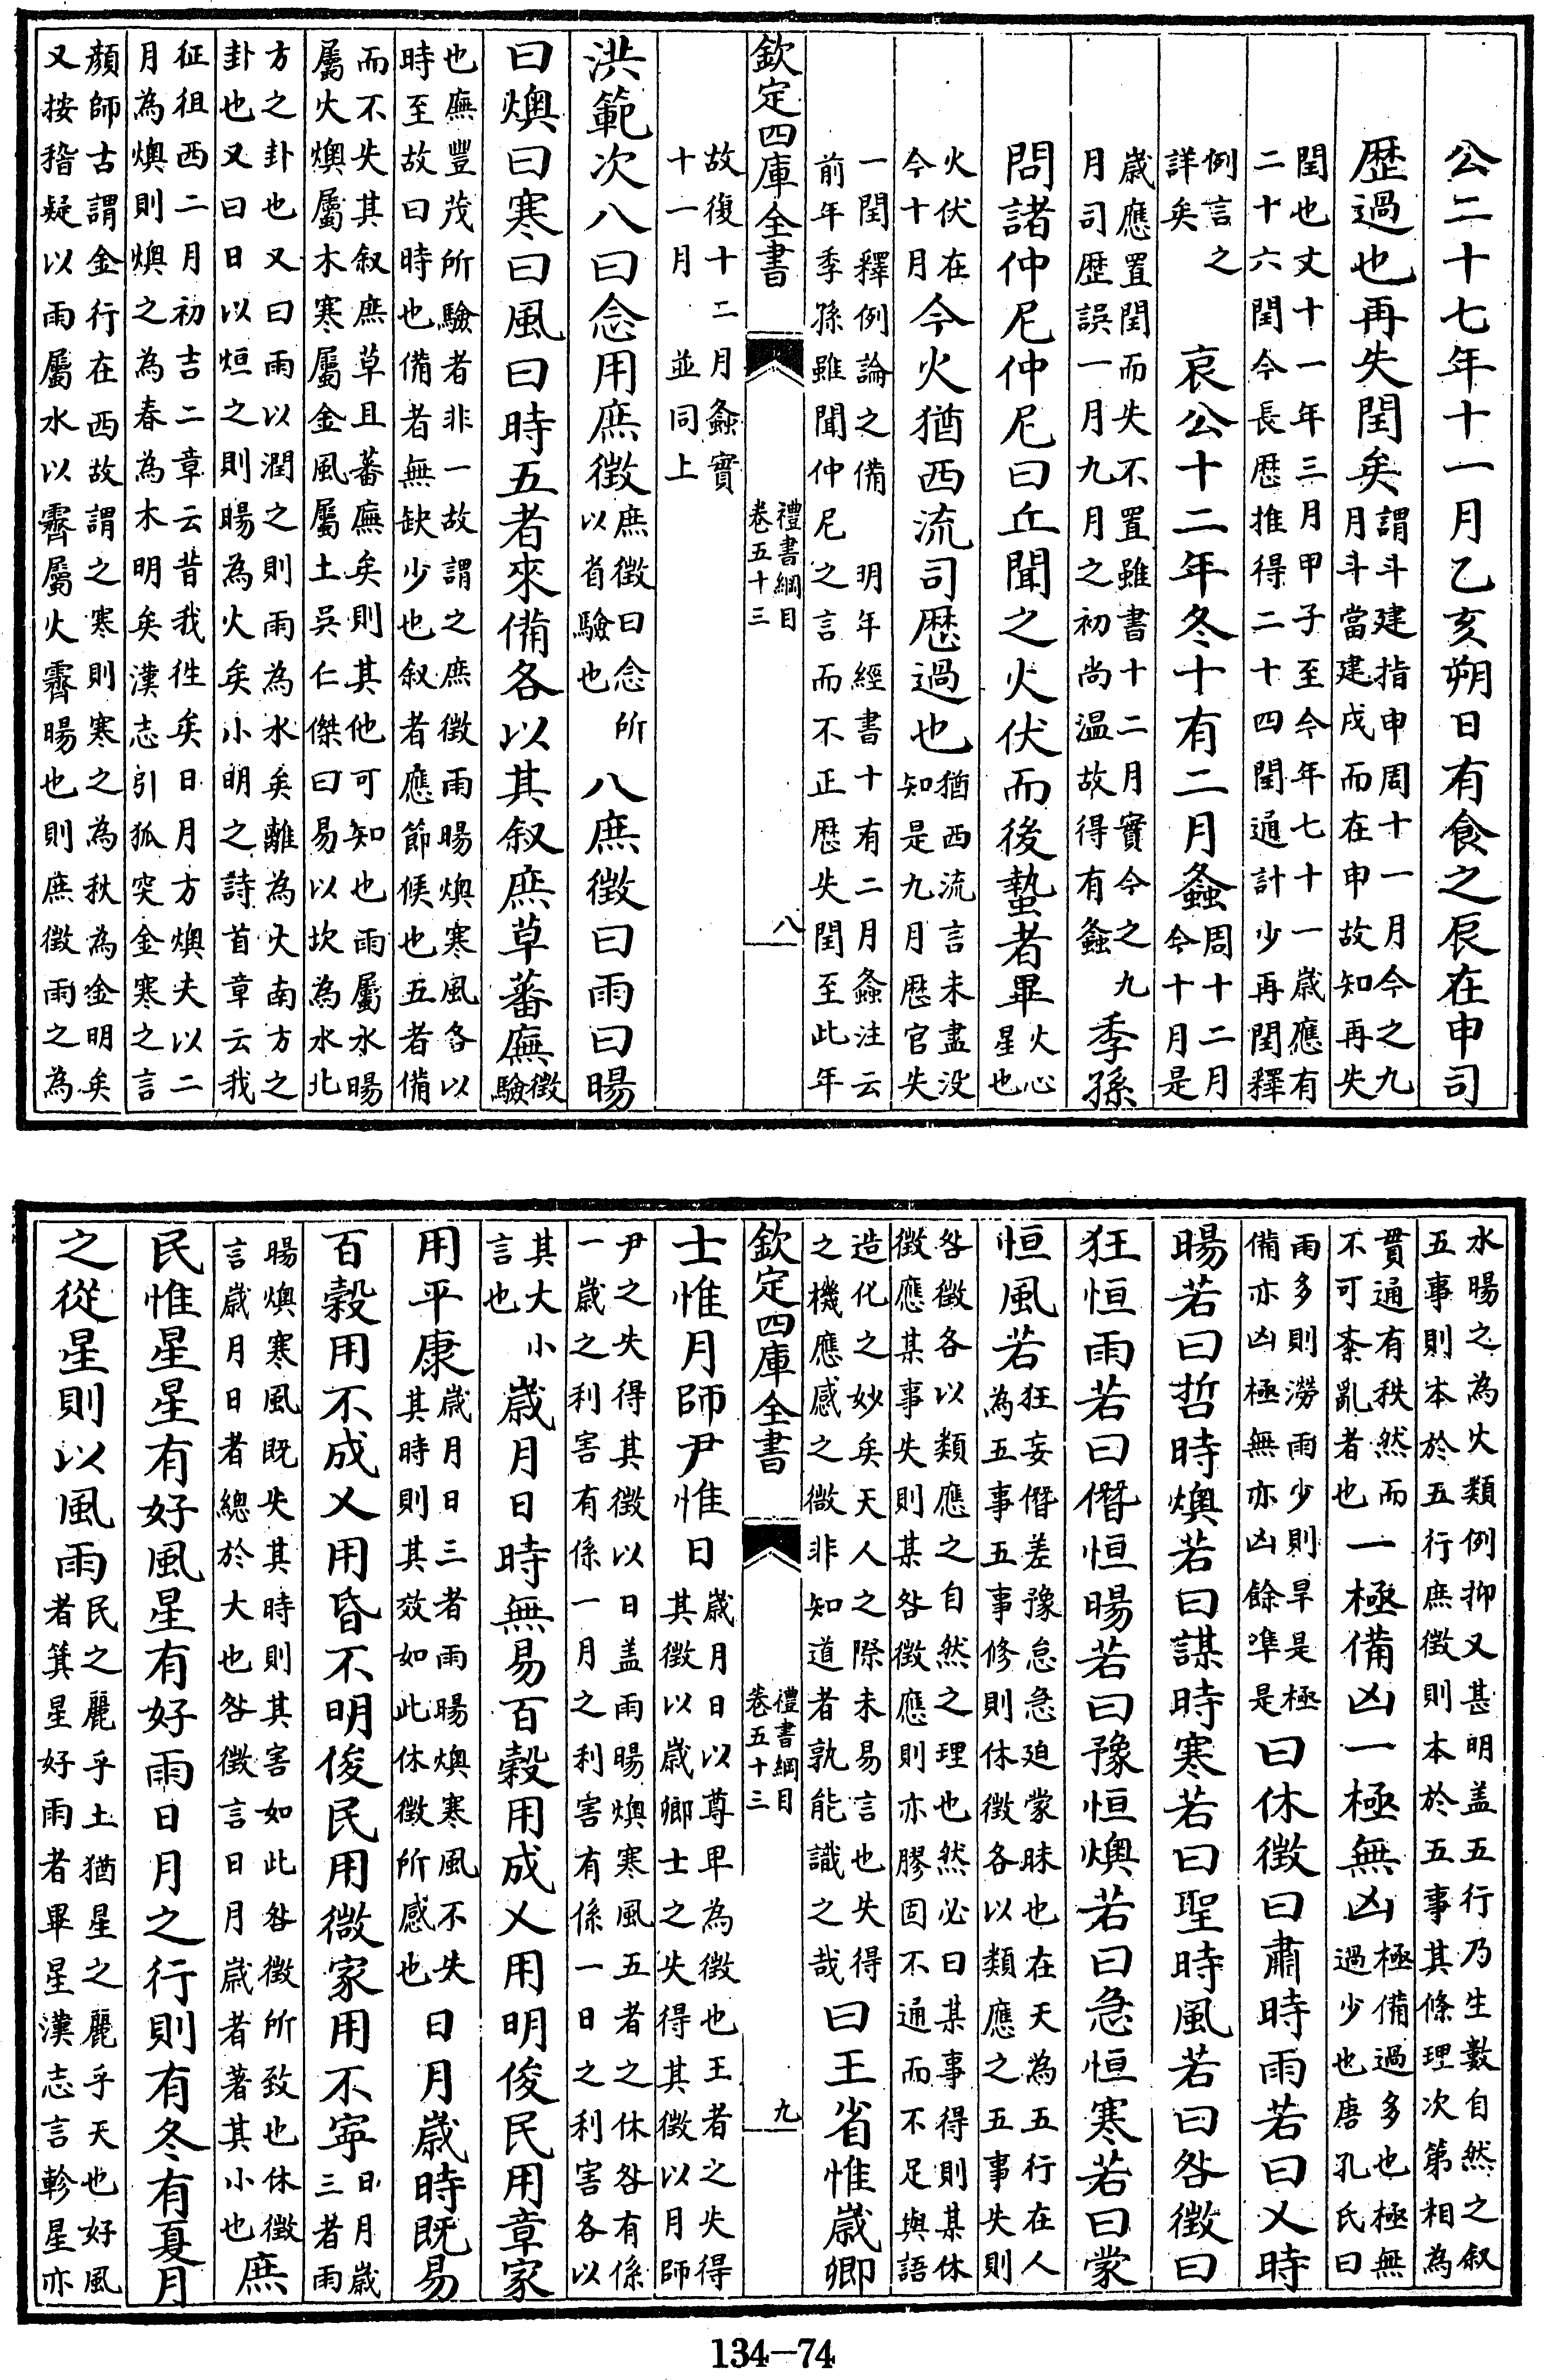 公二十七年十一月乙亥朔日有食之辰在申司
歴過也再失閏矣謂斗建指申周十一月今之九月斗當建戌而在申故知再失
閏也文十一年三月甲子至今年七十一歲應有二十六閏今長歴推得二十四閏通計少再閏釋
例言之詳矣 哀公十二年冬十有二月螽周十二月今十月是
歲應置閏而失不置雖書十二月實今之九月司歴誤一月九月之初尚温故得有螽 季孫
問諸仲尼仲尼曰丘聞之火伏而後蟄者畢火心星也
火伏在今十月今火猶西流司歴過也猶西流言未盡没知是九月歴官失
一閏釋例論之備 明年經書十有二月螽注云前年季孫雖聞仲尼之言而不正歴失閏至此年
欽定四庫全書 禮書綱目 卷五十三 八
故復十二月螽實十一月 並同上
洪範次八曰念用庶徵庶徵曰念所以省驗也 八庶徵曰雨曰暘
曰燠曰寒曰風曰時五者來備各以其叙庶草蕃廡徵驗
也廡豐茂所驗者非一故謂之庶徵雨暘燠寒風各以時至故曰時也備者無缺少也叙者應節候也五者備
而不失其叙庶草且蕃廡矣則其他可知也雨屬水暘屬火燠屬木寒屬金風屬土吳仁傑曰易以坎為水北
方之卦也又曰雨以潤之則雨為水矣離為火南方之卦也又曰日以烜之則暘為火矣小明之詩首章云我
征徂西二月初吉二章云昔我徃矣日月方燠夫以二月為燠則燠之為春為木明矣漢志引狐突金寒之言
顏師古謂金行在西故謂之寒則寒之為秋為金明矣又按稽疑以雨屬水以霽屬火霽暘也則庶徵雨之為
水暘之為火類例抑又甚明盖五行乃生數自然之叙五事則本於五行庶徵則本於五事其條理次第相為
貫通有秩然而不可紊亂者也一極備凶一極無凶極備過多也極無過少也唐孔氏曰
雨多則澇雨少則旱是極備亦凶極無亦凶餘凖是曰休徵曰肅時雨若曰乂時
暘若曰哲時燠若曰謀時寒若曰聖時風若曰咎徵曰
狂恒雨若曰僭恒暘若曰豫恒燠若曰急恒寒若曰蒙
恒風若狂妄僭差豫怠急迫蒙昧也在天為五行在人為五事五事修則休徵各以類應之五事失則
咎徵各以類應之自然之理也然必曰某事得則某休徵應某事失則某咎徵應則亦膠固不通而不足與語
造化之妙矣天人之際未易言也失得之機應感之微非知道者孰能識之哉曰王省惟歲卿
欽定四庫全書 禮書綱目 卷五十三 九
士惟月師尹惟日歲月日以尊卑為徵也王者之失得其徵以歲卿士之失得其徵以月師
尹之失得其徵以日盖雨暘燠寒風五者之休咎有係一歲之利害有係一月之利害有係一日之利害各以
其大小言也 歲月日時無易百穀用成乂用明俊民用章家
用平康歲月日三者雨暘燠寒風不失其時則其效如此休徵所感也 日月歲時既易
百穀用不成乂用昏不明俊民用微家用不寧日月歲三者雨
暘燠寒風既失其時則其害如此咎徵所致也休徵言歲月日者總於大也咎徵言日月歲者著其小也 庶
民惟星星有好風星有好雨日月之行則有冬有夏月
之從星則以風雨民之麗乎土猶星之麗乎天也好風者箕星好雨者畢星漢志言軫星亦
134—74